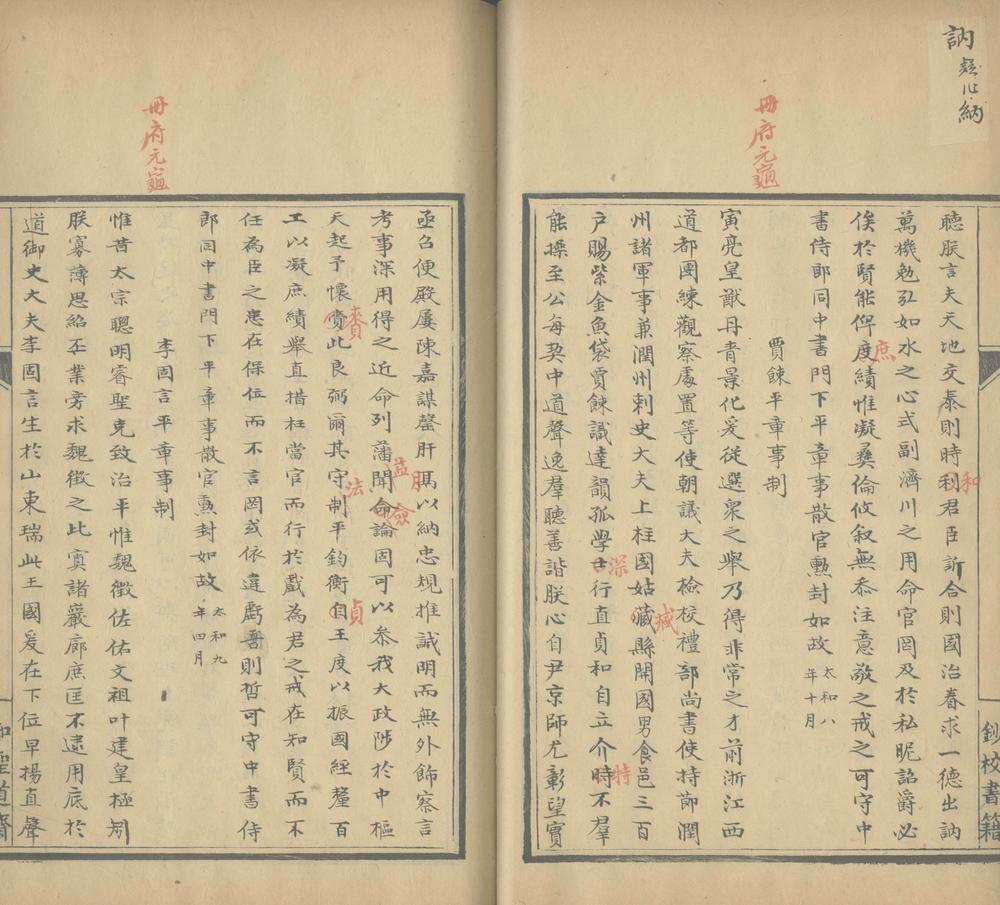 訥疑作納
冊府元龜
鈔校書籍
聽朕言夫天地交泰則時利君臣訢合則國治眷求一德出訥
和
萬機勉弘如水之心式副濟川之用命官罔及於私昵詔爵必
俟於賢能俾度績惟凝彝倫攸叙無忝注意敬之戒之可守中
庶
書侍郎同中書門下平章事散官勲封如故太和八年十月
賈餗平章事制
寅亮皇猷丹青景化爰從選衆之舉乃得非常之才前浙江西
道都團練觀察處置等使朝議大夫檢校禮部尚書使持節潤
州諸軍事兼潤州刺史大夫上柱國姑藏縣開國男食邑三百
臧
戶賜紫金魚袋賈餗識達韻孤學世行直貞和自立介時不羣
深
特
能操至公每契中道聲逸羣聽善諧朕心自尹京師尤彰望實
冊府元龜
亟召便殿屢陳嘉謀罄肝膈以納忠規推誠明而無外飾察言
月
考事深用得之近命列藩開命論固可以叅我大政陟於中樞
益
僉
天起予懷賞此良弼爾其守制平鈞衡自王度以振國經釐百
賚
法
貞
工以凝庶績舉直措枉當官而行於戲為君之戒在知賢而不
任為臣之患在保位而不言罔或依違虧吾則哲可守中書侍
郎同中書門下平章事散官勲封如故太和九年四月
李固言平章事制
惟昔太宗聰明睿聖克致治平惟魏徵佐佑文祖叶建皇極制
朕寡薄思紹丕業旁求魏徵之比寘諸巖廊庶匡不逮用底於
道御史大夫李固言生於山東瑞此王國爰在下位早揚直聲
知聖道齋